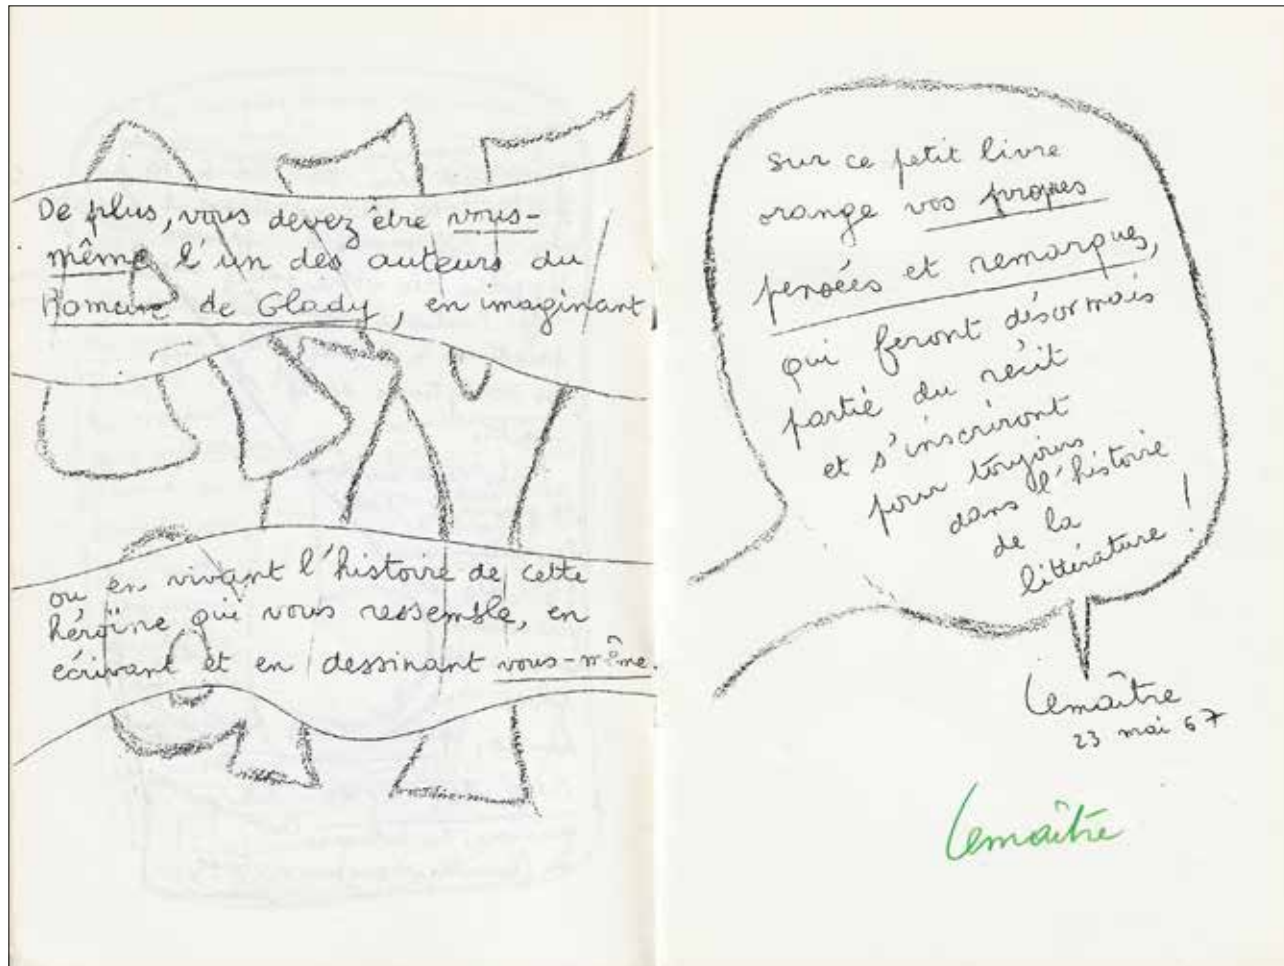 De plus, vous devez être vous-
même l'un des auteurs du
Romane de Glady, en imaginant
ou en vivant l'histoire de cette
héroïne qui vous ressemble, en
écrivant et en dessinant vous-même.
sur ce petit livre
orange vos propres
pensées et remarques,
qui feront désormais
partie du récit
et s'inscriront
pour toujours
dans l'histoire
de la
littérature !
Lemaître
23 mai 67
Lemaître